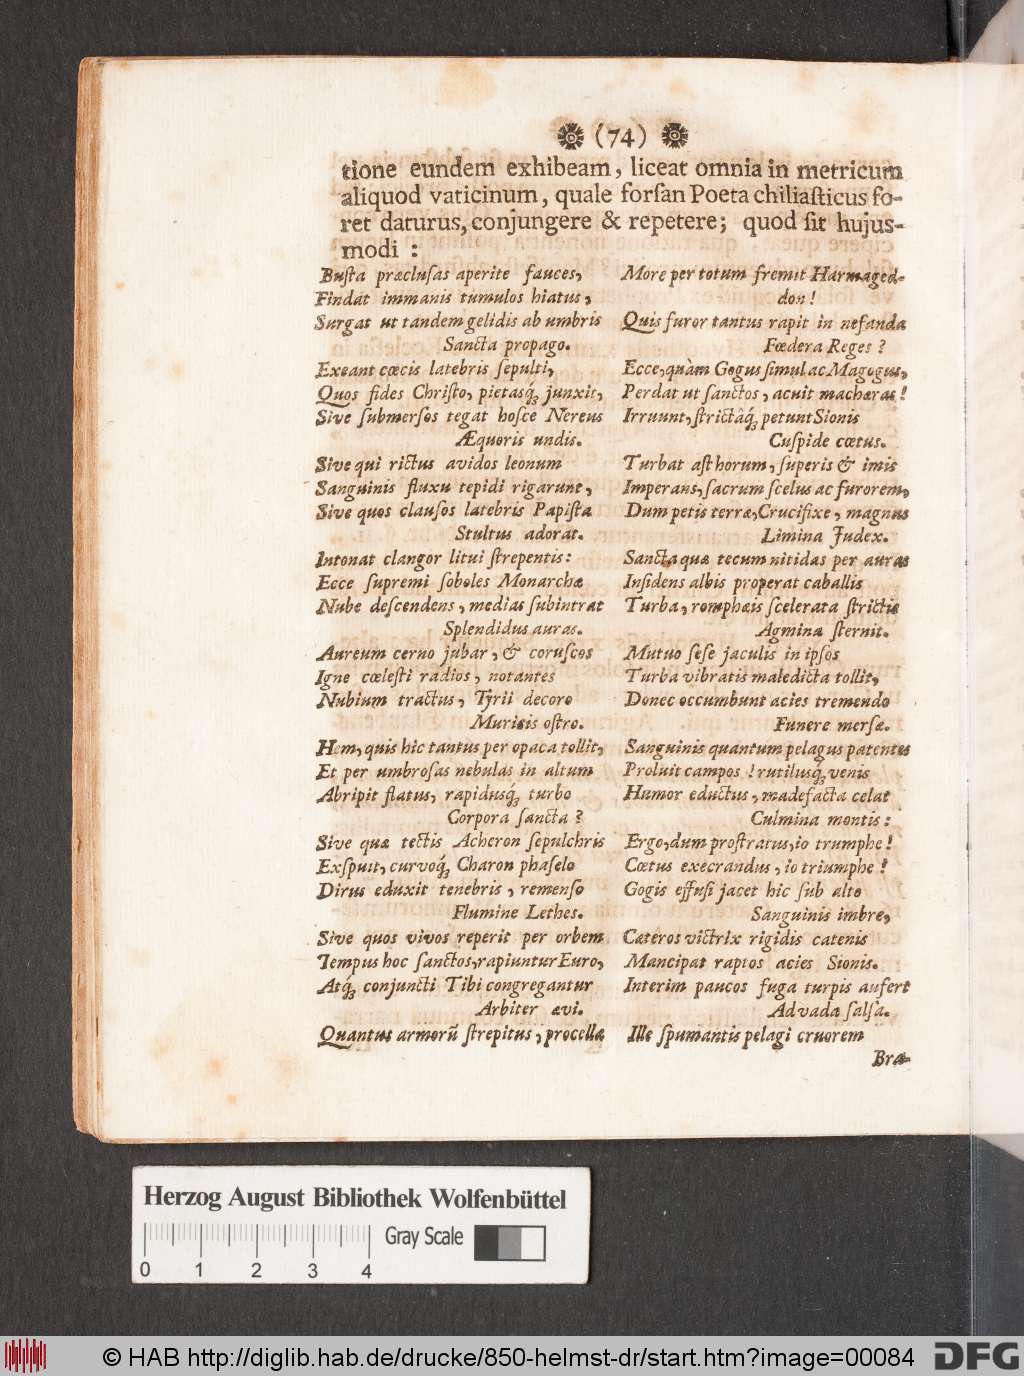 (74)
tione eundem exhibeam, liceat omnia in metricum
aliquod vaticinum, quale forſan Poeta chiliaſticus fo-
ret daturus, conjungere & repetere; quod ſit hujus-
modi :
Buſta præcluſas aperite fauces,
Findat immanis tumulos hiatus,
Surgat ut tandem gelidis ab umbris
Sancta propago.
Exeant cœcis latebris ſepulti,
Quos fides Chriſto, pietasq́; junxit,
Sive ſubmerſos tegat hoſce Nereus
Æquoris undis.
Sive qui rictus avidos leonum
Sanguinis fluxu tepidi rigarunt,
Sive quos clauſos latebris Papiſta
Stultus adorat.
Intonat clangor litui ſtrepentis:
Ecce ſupremi ſoboles Monarchæ
Nube deſcendens, medias ſubintrat
Splendidus auras.
Aureum cerno jubar, & coruſcos
Igne cœleſti radios, notantes
Nubium tractus, Tyrii decoro
Muricis oſtro.
Hem, quis hic tantus per opaca tollit,
Et per umbroſas nebulas in altum
Abripit flatus, rapidusq́; turbo
Corpora ſancta ?
Sive quæ tectis Acheron ſepulchris
Exſpuit, curvoq́; Charon phaſelo
Dirus eduxit tenebris, remenſo
Flumine Lethes.
Sive quos vivos reperit per orbem
Tempus hoc ſanctos, rapiuntur Euro,
Atq́; conjuncti Tibi congregantur
Arbiter ævi.
Quantus armorũ ſtrepitus, procellæ
More per totum fremit Harmaged-
don !
Quis furor tantus rapit in nefanda
Fœdera Reges ?
Ecce, quàm Gogus ſimul ac Magogus,
Perdat ut ſanctos, acuit machæras !
Irruunt, ſtrictâq́; petunt Sionis
Cuſpide cœtus.
Turbat aſt horum, ſuperis & imis
Imperans, ſacrum ſcelus ac furorem,
Dum petis terræ, Crucifixe, magnus
Limina Judex.
Sancta quæ tecum nitidas per auras
Inſidens albis properat caballis
Turba, romphæis ſcelerata ſtrictis
Agmina ſternit.
Mutuo ſeſe jaculis in ipſos
Turba vibratis maledicta tollit,
Donec occumbunt acies tremendo
Funere merſæ.
Sanguinis quantum pelagus patentes
Proluit campos ! rutilusq́; venis
Humor eductus, madefacta celat
Culmina montis :
Ergo, dum proſtratus, io trumphe !
Cœtus execrandus, io triumphe !
Gogis effuſi jacet hic ſub alto
Sanguinis imbre,
Cæteros victrix rigidis catenis
Mancipat raptos acies Sionis.
Interim paucos fuga turpis aufert
Ad vada ſalſa.
Ille ſpumantis pelagi cruorem
Bra-
Herzog August Bibliothek Wolfenbüttel
Gray Scale
0 1 2 3 4
© HAB http://diglib.hab.de/drucke/850-helmst-dr/start.htm?image=00084
DFG